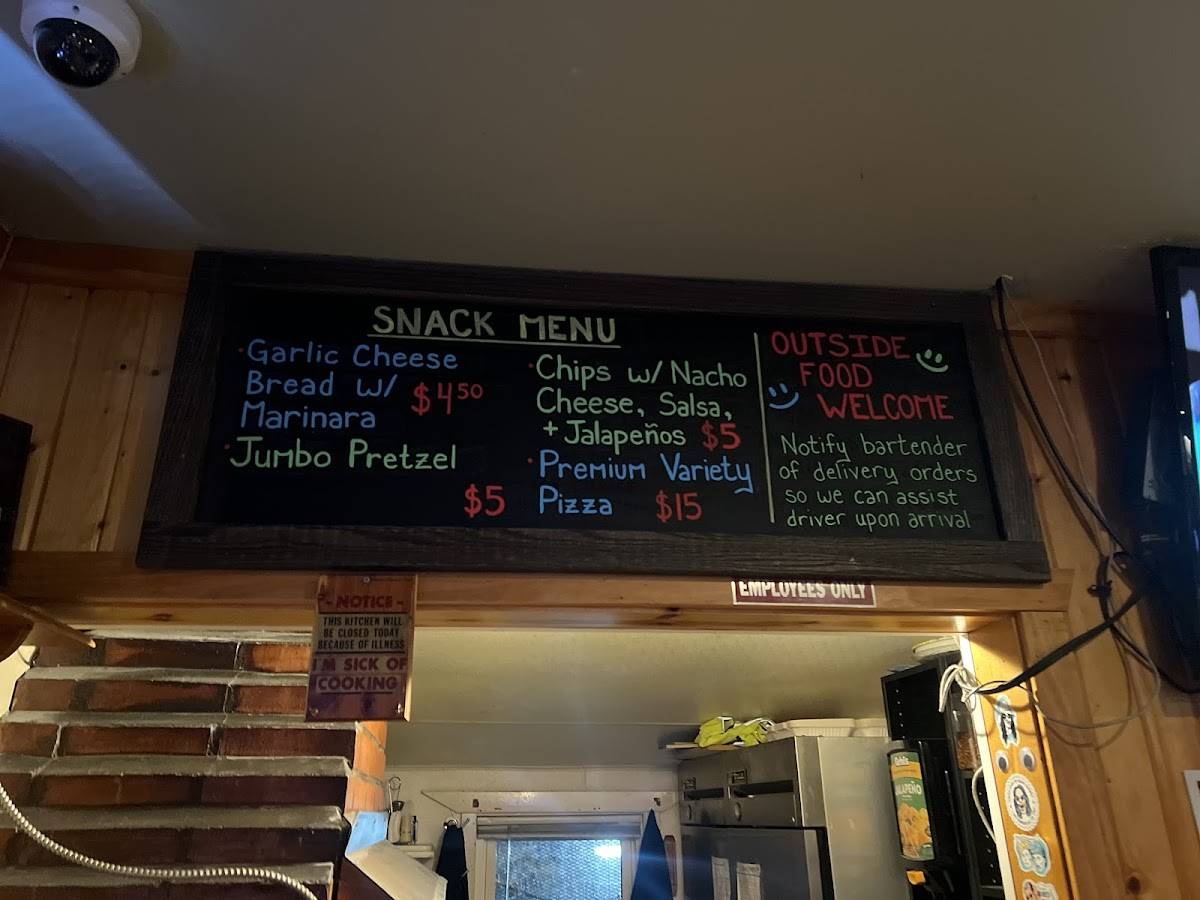 SNACK MENU
· Garlic Cheese
Bread w/ $4.50
Marinara
· Jumbo Pretzel
$5
· Chips w/ Nacho
Cheese, Salsa,
+ Jalapeños $5
· Premium Variety
Pizza $15
OUTSIDE
FOOD
WELCOME
Notify bartender
of delivery orders
so we can assist
driver upon arrival
EMPLOYEES ONLY
- NOTICE -
THIS KITCHEN WILL
BE CLOSED TODAY
BECAUSE OF ILLNESS
I'M SICK OF
COOKING
JALAPEÑO